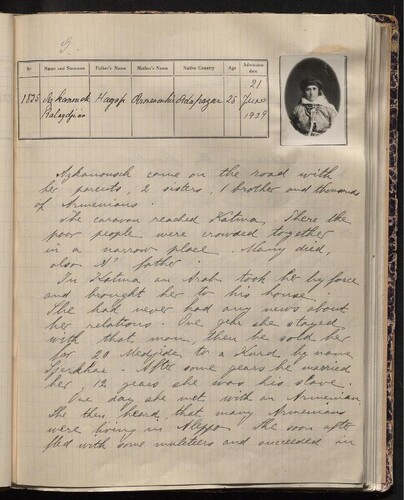 9.
№ Name and Surname Father's Name Mother's Name Native Country Age Admission date
1835 Azkanousch Balagdjian Hagop Osmanouhi Adapazar 25 21 June 1929
Azkanousch came on the road with
her parents, 2 sisters, 1 brother and thousands
of Armenians.
The caravan reached Katma. There the
poor people were crowded together
in a narrow place. Many died,
also A' father.
In Katma an Arab took her by force
and brought her to his house.
She had never had any news about
her relations. One year she stayed
with that man, then he sold her
for 20 Medjide, to a Kurd, by name
After some years he married
her, 12 years she was his slave.
One day she met with an Armenian.
She then heard, that many Armenians
were living in Aleppo. She soon after
fled with some muleteers and succeeded in